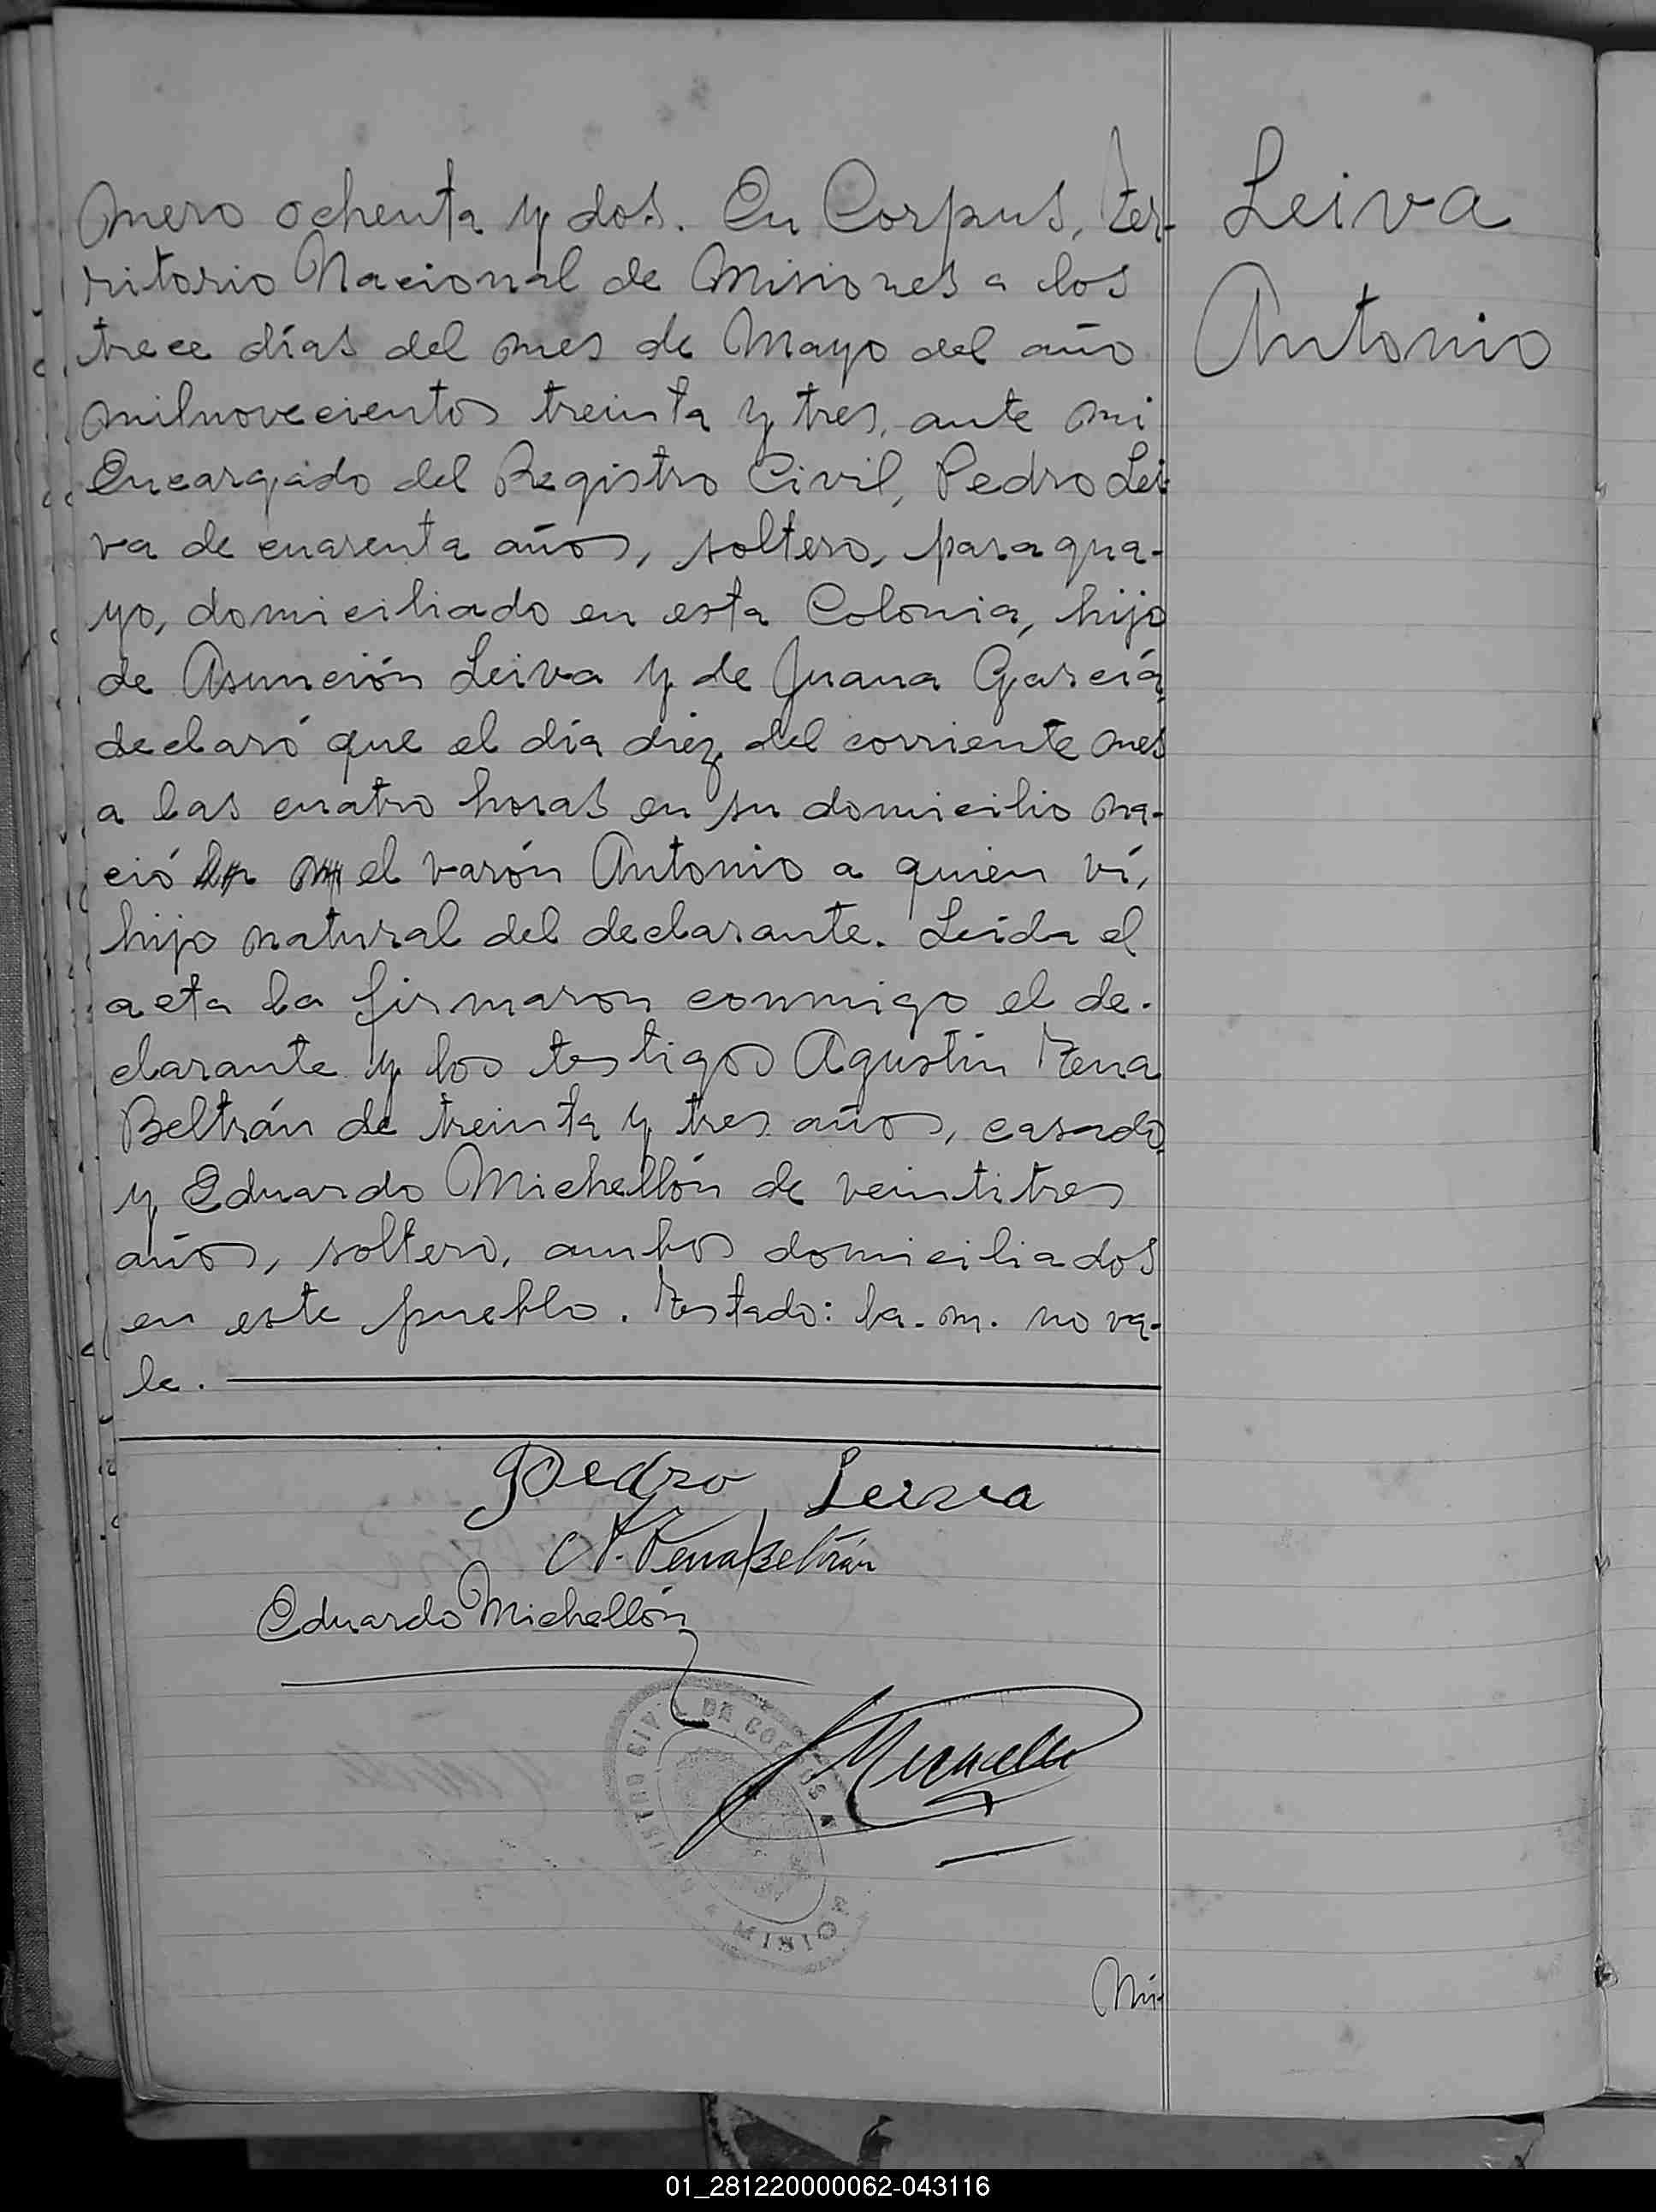 mero ochenta y dos. En Corpus, Ter-
ritorio Nacional de Misiones a los
trece días del mes de Mayo del año
milnovecientos treinta y tres, ante mi
Encargado del Registro Civil, Pedro Lei-
va de cuarenta años, soltero, paragua-
yo, domiciliado en esta Colonia, hijo
de Asunción Leiva y de Juana García,
declaró que el día diez del corriente mes
a las cuatro horas en su domicilio na-
ció el varón Antonio a quien ví,
hijo natural del declarante. Leida el
acta la firmaron conmigo el de-
clarante y los testigos Agustín Tena
Beltrán de treinta y tres años, casado,
y Eduardo Michellón de veintitres
años, soltero, ambos domiciliados
en este pueblo. Testado: la. m. no va-
le.
Leiva
Antonio
Pedro Leiva
A. Tena Beltrán
Eduardo Michellón
REGISTRO CIVIL DE CORPUS
Nú-
01_281220000062-043116